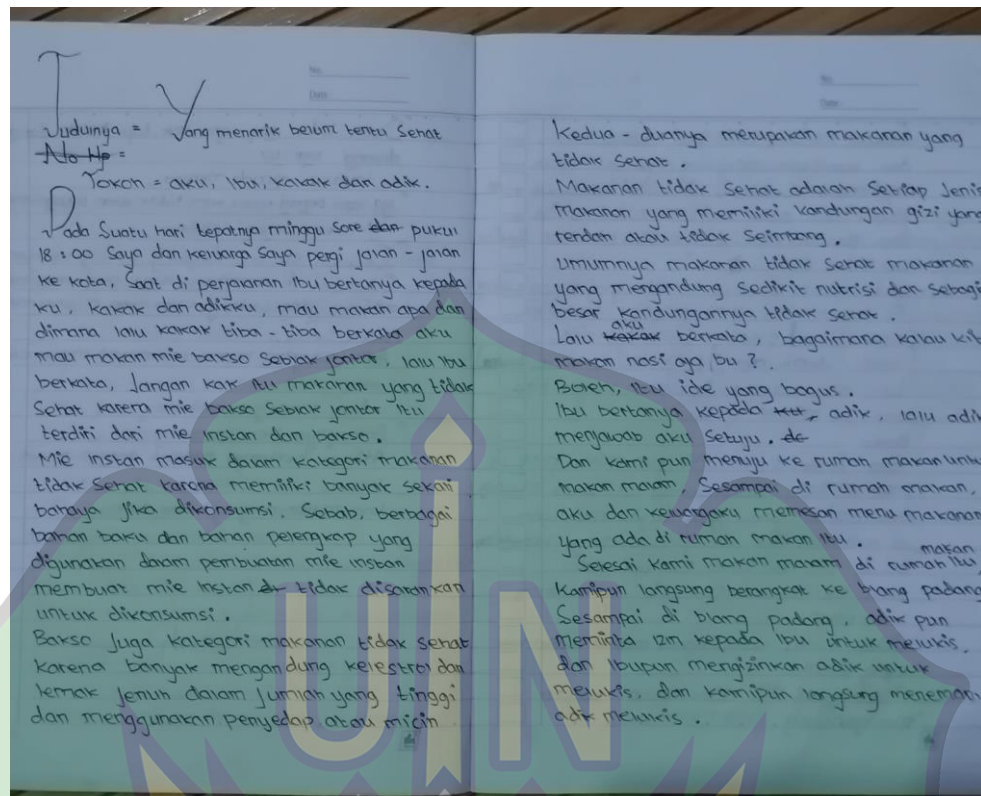 No.
Date
Judulnya = Yang menarik belum tentu sehat
No Hp =
Tokoh = aku, ibu, kakak dan adik.
Pada Suatu hari tepatnya minggu sore dan pukul
18:00 Saya dan keluarga Saya pergi jalan - jalan
ke kota, Saat di perjalanan Ibu bertanya kepada
ku, kakak dan adikku, mau makan apa dan
dimana lalu kakak tiba - tiba berkata aku
mau makan mie bakso Seblak jontor, lalu Ibu
berkata, Jangan kak itu makanan yang tidak
Sehat karena mie bakso Seblak jontor itu
terdiri dari mie instan dan bakso.
Mie instan masuk dalam kategori makanan
tidak Sehat karena memiliki banyak sekali
bahaya jika dikonsumsi. Sebab, berbagai
bahan baku dan bahan pelengkap yang
digunakan dalam pembuatan mie instan
membuat mie instan tidak disarankan
untuk dikonsumsi.
Bakso Juga kategori makanan tidak sehat
karena banyak mengandung kelestrol dan
lemak Jenuh dalam Jumlah yang tinggi
dan menggunakan penyedap atau micin
No.
Date
Kedua - duanya merupakan makanan yang
tidak Sehat.
Makanan tidak Sehat adalah Setiap Jenis
makanan yang memiliki kandungan gizi yang
rendah atau tidak Seimbang.
Umumnya makanan tidak Sehat makanan
yang mengandung Sedikit nutrisi dan sebagi
besar kandungannya tidak sehat.
Lalu kakak aku berkata, bagaimana kalau kit
makan nasi aja bu?
Boleh, itu ide yang bagus.
Ibu bertanya kepada adik, lalu adik
menjawab aku Setuju. de
Dan kami pun menuju ke rumah makan untu
makan malam Sesampai di rumah makan,
aku dan keluargaku memesan menu makanan
yang ada di rumah makan itu.
Selesai kami makan malam di rumah makan itu,
Kamipun langsung berangkat ke blang padang
Sesampai di blang padang, adik pun
meminta izin kepada ibu untuk melukis,
dan Ibupun mengizinkan adik untuk
melukis, dan kamipun langsung meneman
adik melukis.
UIN